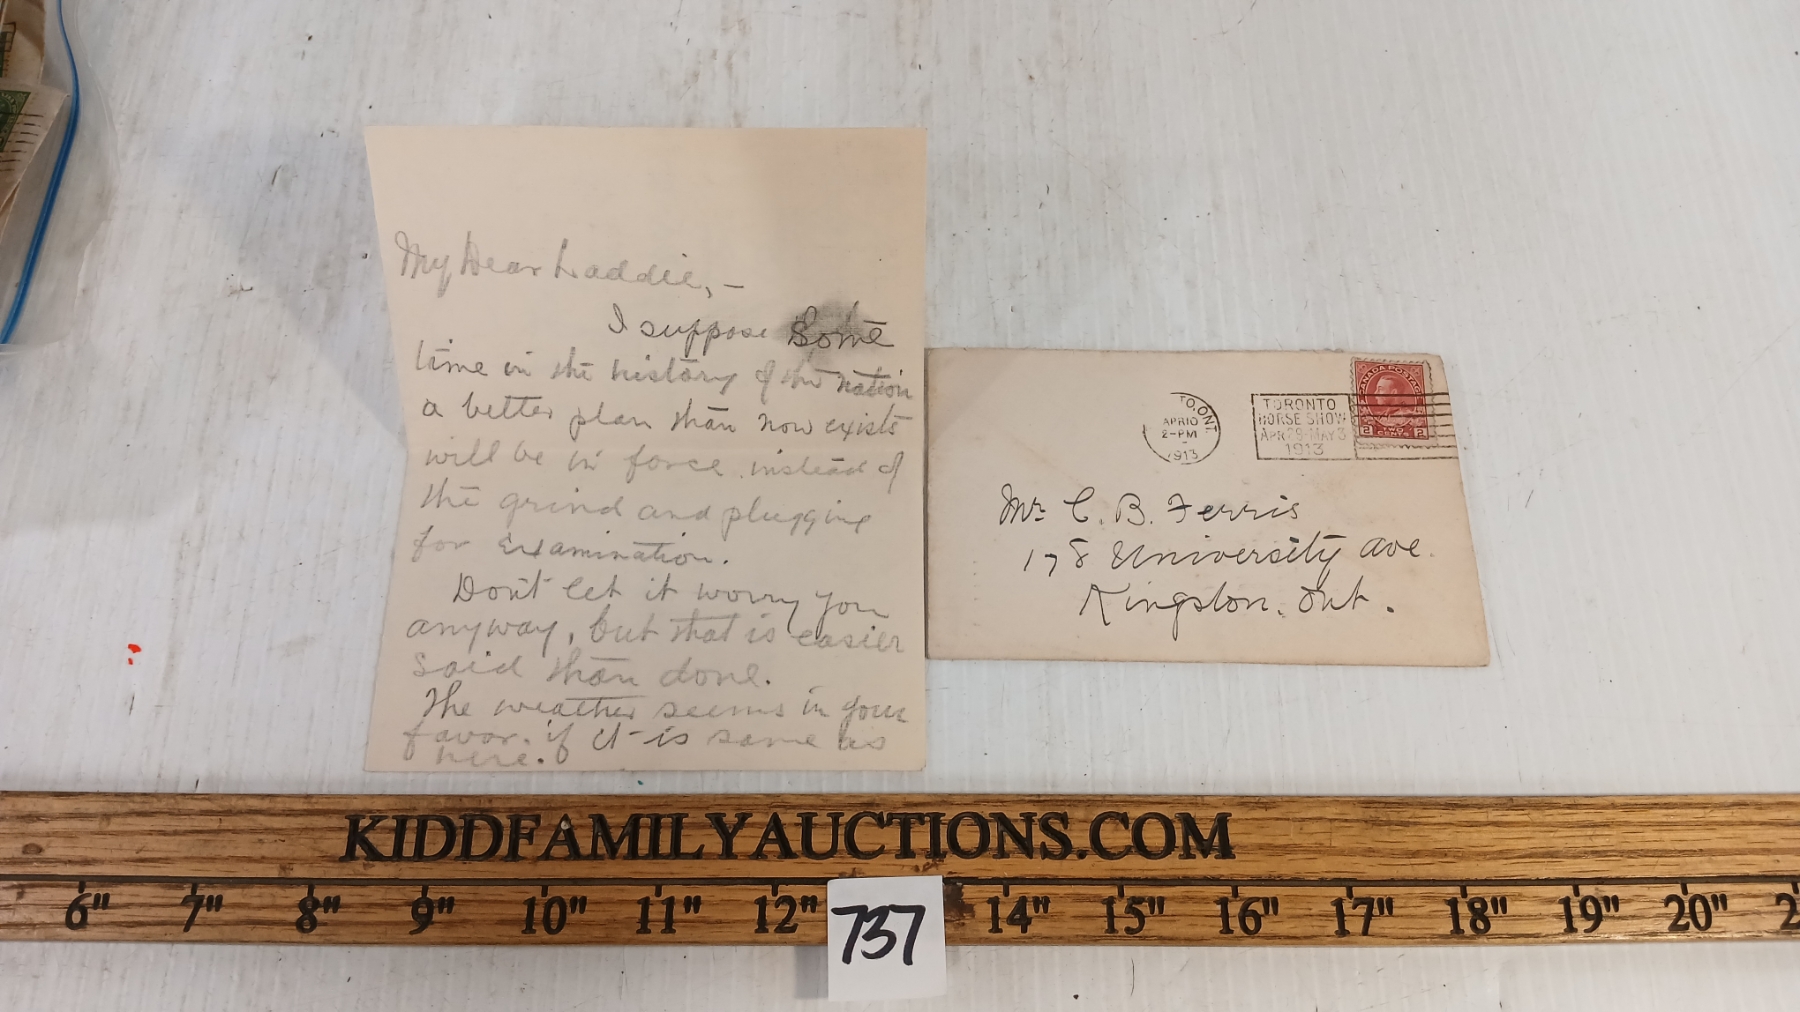 My Dear Laddie, -
I suppose Some
time in the history of the nation
a better plan than now exists
will be in force instead of
the grind and plugging
for examination.
Don't let it worry you
anyway, but that is easier
said than done.
The weather seems in your
favor. if it is same as
here.
TO, ONT
APR 10
2-PM
1913
TORONTO
HORSE SHOW
APR 29-MAY 3
1913
CANADA POSTAGE
2 TWO CENTS 2
Mr. C. B. Ferris
178 University Ave.
Kingston, Ont.
KIDDFAMILYAUCTIONS.COM
6" 7" 8" 9" 10" 11" 12" 14" 15" 16" 17" 18" 19" 20" 2
737